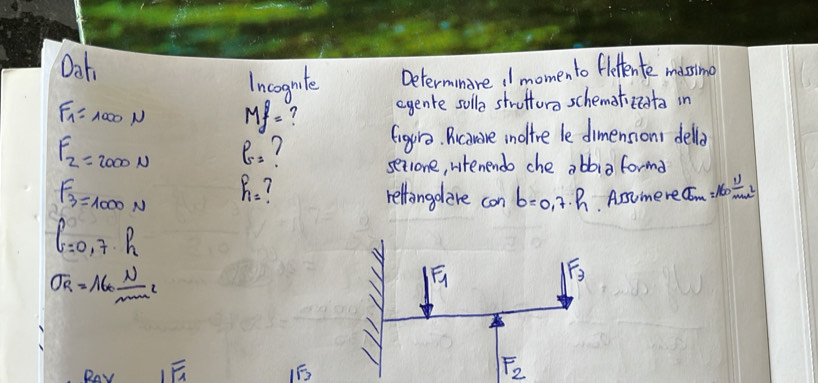 Dati
F1 = 1000 N
F2 = 2000 N
F3 = 1000 N
b = 0,7 · h
σR = 160 N/mm²
Incognite
Mf = ?
b = ?
h = ?
Determinare il momento flettente massimo
agente sulla struttura schematizzata in
figura. Ricavare inoltre le dimensioni della
sezione, ritenendo che abbia forma
rettangolare con b = 0,7 · h. Assumere σam = 160 N/mm²
F1
F3
F2
RAY
F1
F3